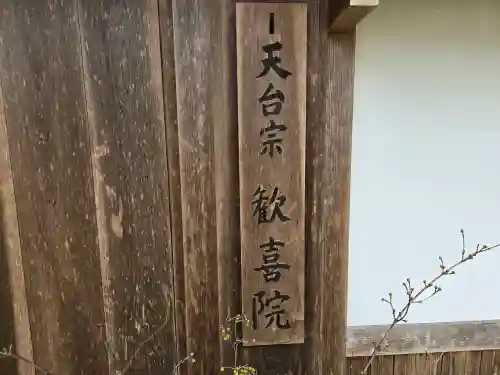 天台宗 歓喜院